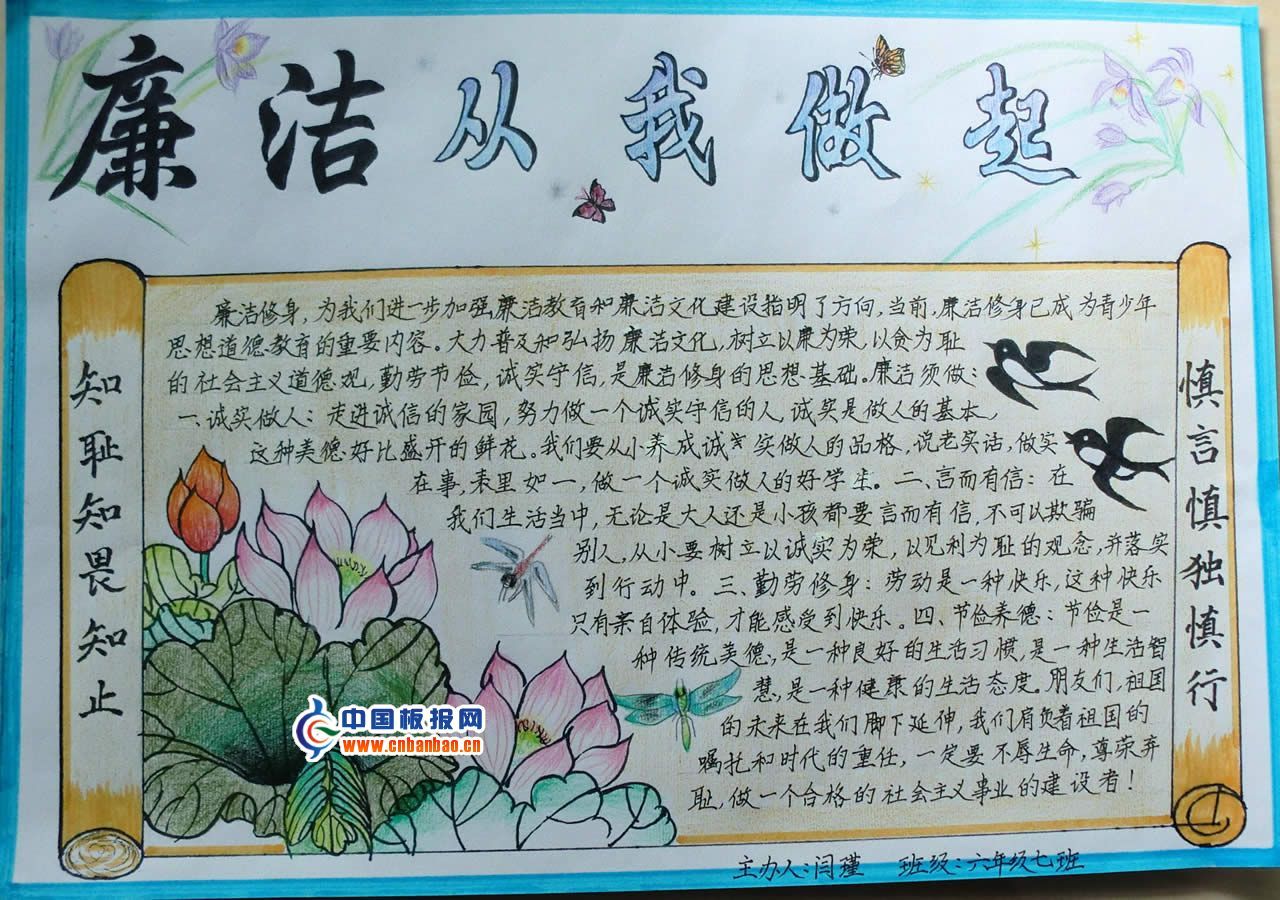 廉洁从我做起
知耻知畏知止
廉洁修身，为我们进一步加强廉洁教育和廉洁文化建设指明了方向，当前，廉洁修身已成为青少年
思想道德教育的重要内容。大力普及和弘扬廉洁文化，树立以廉为荣，以贪为耻
的社会主义道德观，勤劳节俭，诚实守信，是廉洁修身的思想基础。廉洁须做：
一、诚实做人：走进诚信的家园，努力做一个诚实守信的人，诚实是做人的基本，
这种美德好比盛开的鲜花。我们要从小养成诚实做人的品格，说老实话，做实
在事，表里如一，做一个诚实做人的好学生。二、言而有信：在
我们生活当中，无论是大人还是小孩都要言而有信，不可以欺骗
别人，从小要树立以诚实为荣，以见利为耻的观念，并落实
到行动中。三、勤劳修身：劳动是一种快乐，这种快乐
只有亲自体验，才能感受到快乐。四、节俭养德：节俭是一
种传统美德，是一种良好的生活习惯，是一种生活智
慧，是一种健康的生活态度。朋友们，祖国
的未来在我们脚下延伸，我们肩负着祖国的
嘱托和时代的重任，一定要不辱生命，尊荣弃
耻，做一个合格的社会主义事业的建设者！
慎言慎独慎行
中国板报网
www.cnbanbao.cn
主办人：闫瑾 班级：六年级七班